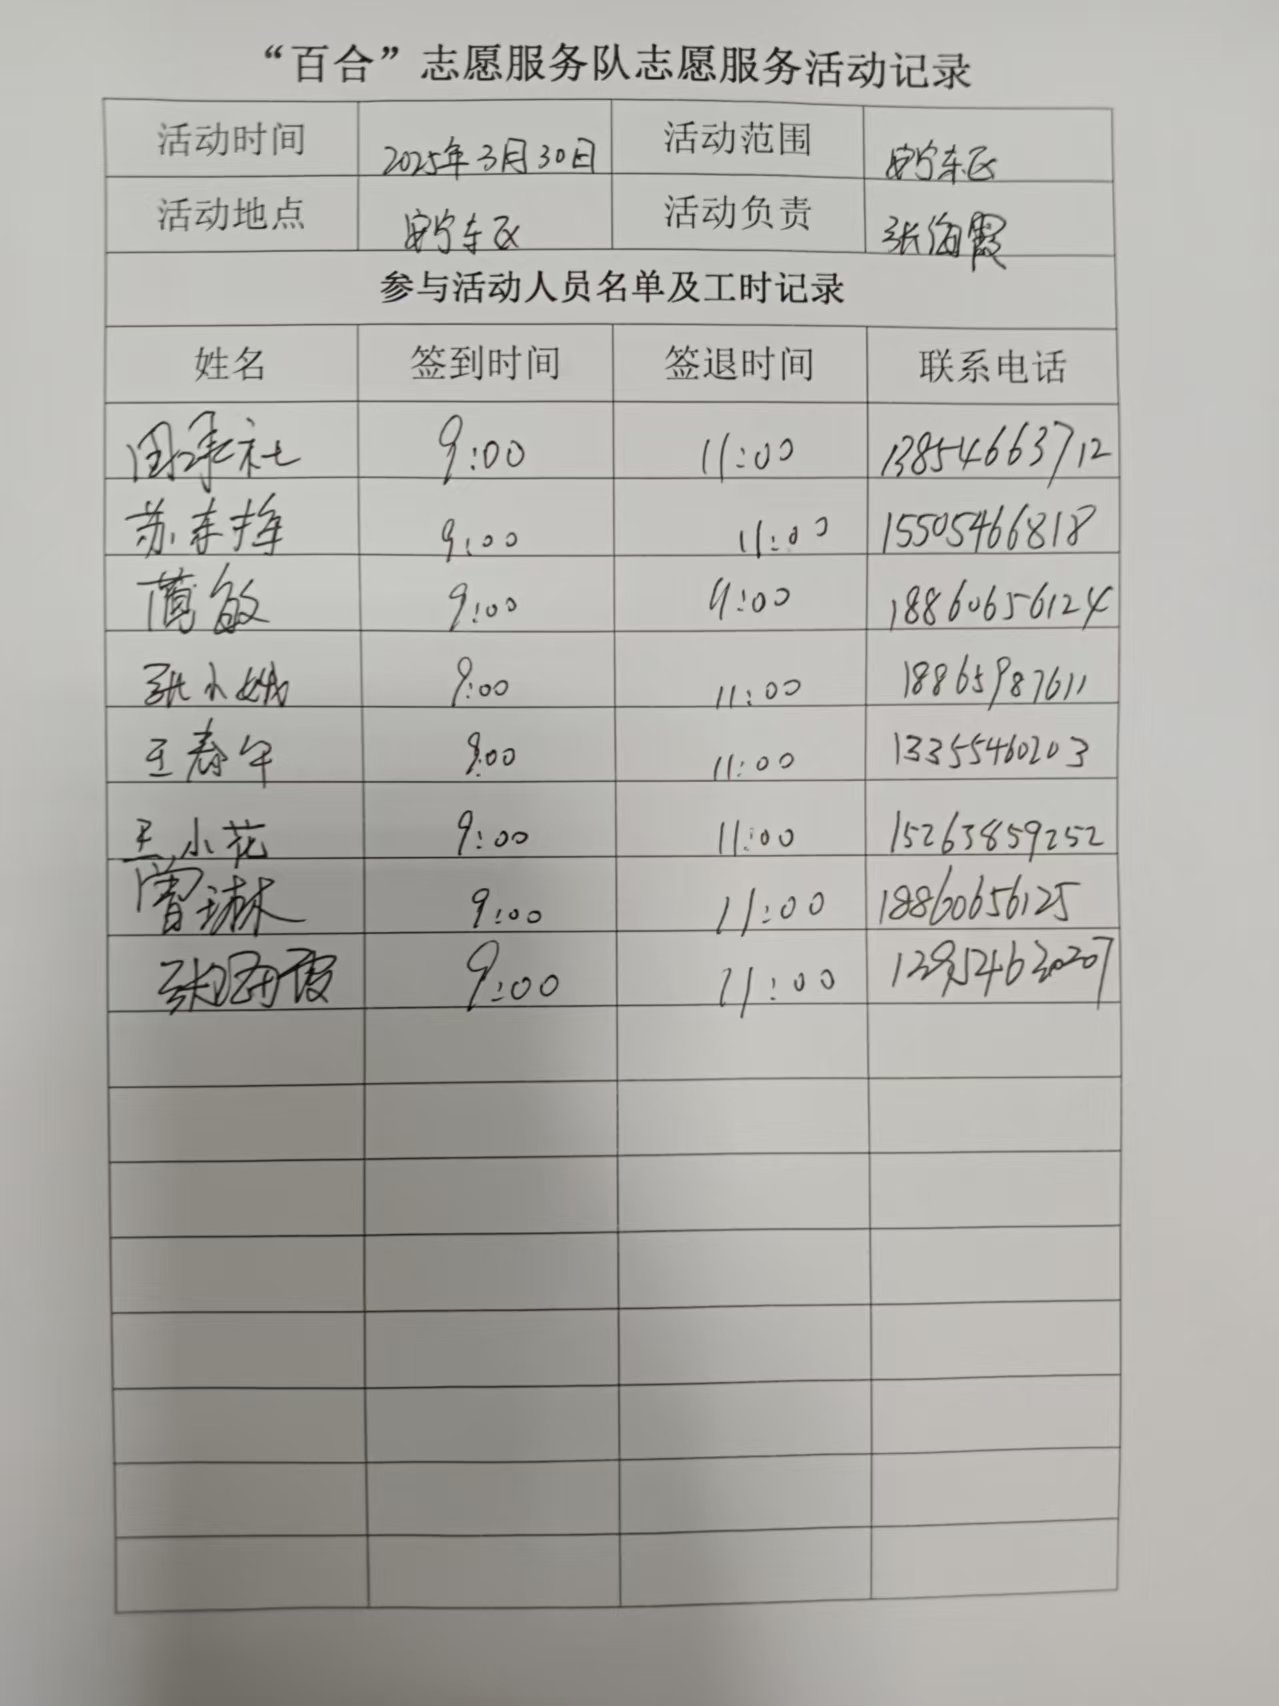 “百合”志愿服务队志愿服务活动记录
活动时间 2025年3月30日 活动范围 安宁东区
活动地点 安宁东区 活动负责 张海霞
参与活动人员名单及工时记录
姓名 签到时间 签退时间 联系电话
9:00 11:00 13854663712
苏春梅 9:00 11:00 15505466818
敏 9:00 11:00 18860656124
张小娥 9:00 11:00 18865987611
王春午 9:00 11:00 13355460203
王小花 9:00 11:00 15263859252
曾琳 9:00 11:00 18860656125
张海霞 9:00 11:00